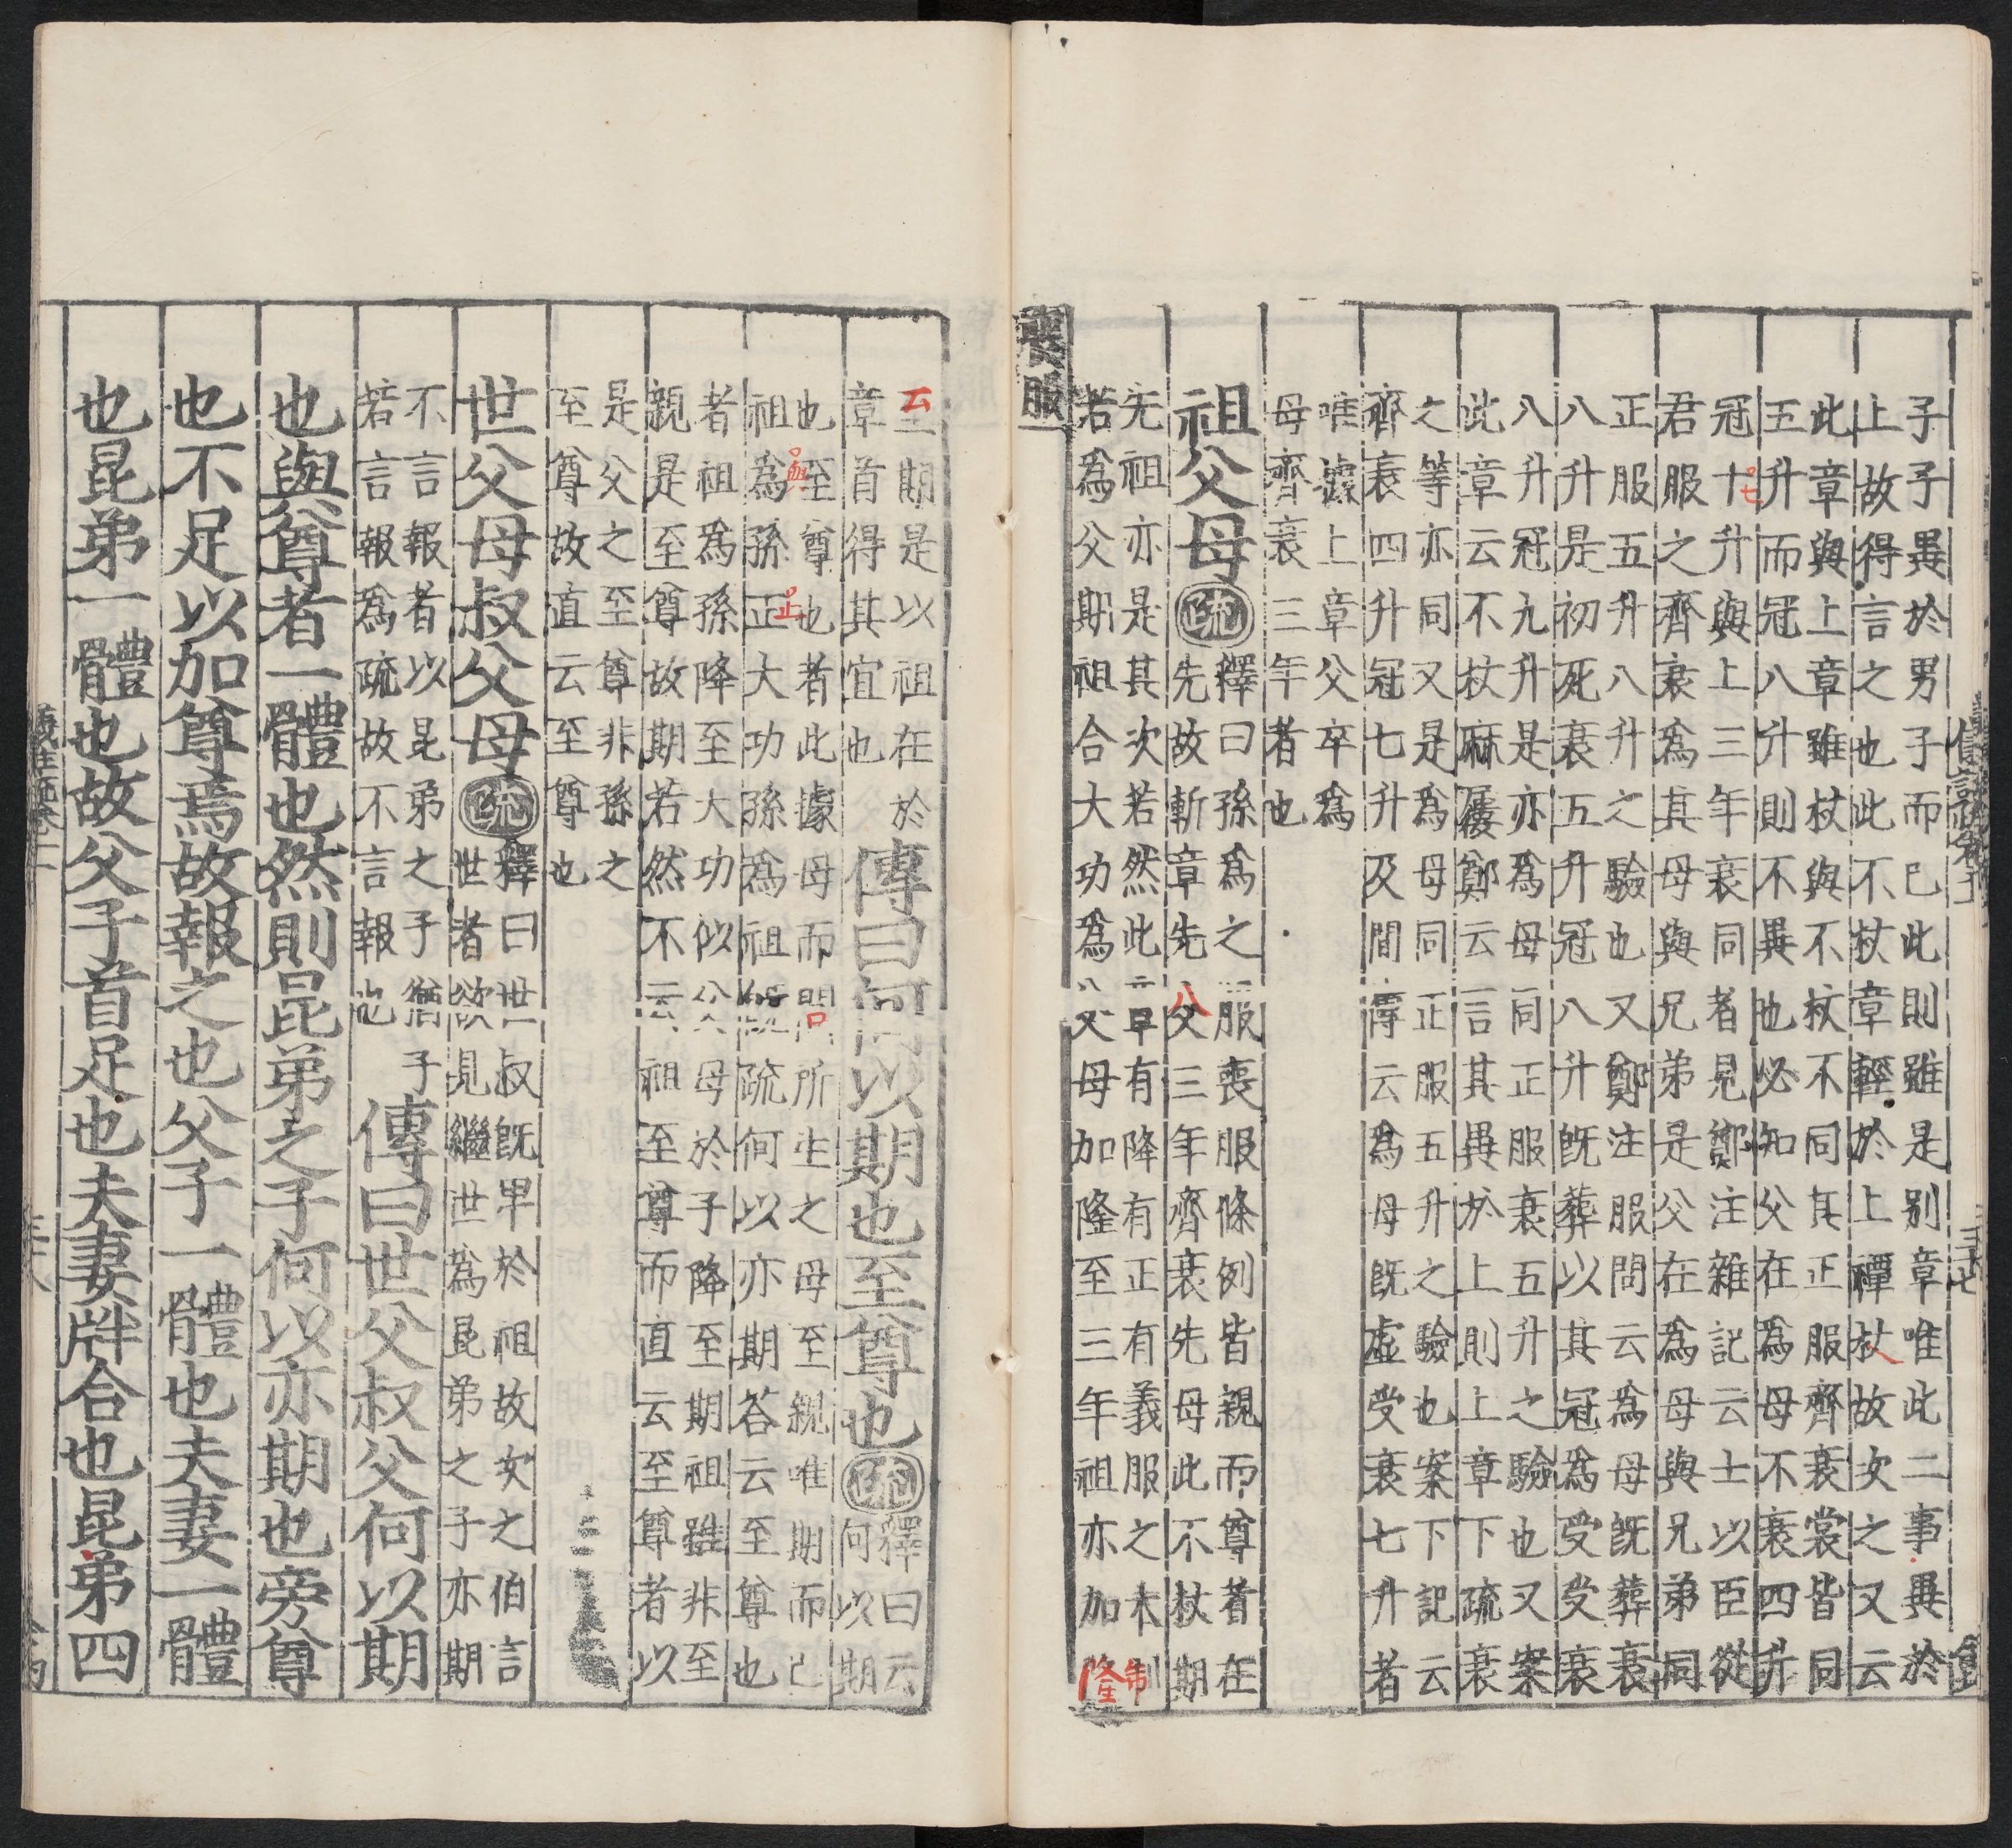 子子異於男子而已此則雖是別章唯此二事異於
止故得言之也此不杖章輕於上禫杖故次之又云
此章與上章雖杖與不杖不同其正服齊衰裳皆同
五升而冠八升則不異也必知父在為母不衰四升
冠十升與上三年衰同者見鄭注雜記云士以臣從
七
君服之齊衰為其母與兄弟是父在為母與兄弟同
正服五升八升之驗也又鄭注服問云為母既葬衰
八升是初死衰五升冠八升既葬以其冠為受受衰
八升冠九升是亦為母同正服衰五升之驗也又案
此章云不杖麻屨鄭云言其異於上則上章下疏衰
之等亦同又是為母同正服五升之驗也案下記云
齊衰四升冠七升及間傳云為母既虛受衰七升者
唯據上章父卒為
母齊衰三年者也
祖父母疏釋曰孫為之服喪服條例皆親而尊者在
先故斬章先父三年齊衰先母此不杖期
先祖亦是其次若然此章有降有正有義服之本制
若為父期祖合大功為父母加隆至三年祖亦加隆
喪服
云期是以祖在於
章首得其宜也
傳曰何以期也至尊也疏釋曰云
何以期
也至尊也者此據母而問所生之母至親唯期而已
祖為孫正大功孫為祖既疏何以亦期荅云至尊也
者祖為孫降至大功似父母於子降至期祖雖非至
親是至尊故期若然不云祖至尊而直云至尊者以
是父之至尊非孫之
至尊故直云至尊也
世父母叔父母疏釋曰世叔既卑於祖故次之伯言
世者欲見繼世為昆弟之子亦期
不言報者以昆弟之子猶子
若言報為疏故不言報也
傳曰世父叔父何以期
也與尊者一體也然則昆弟之子何以亦期也旁尊
也不足以加尊焉故報之也父子一體也夫妻一體
也昆弟一體也故父子首足也夫妻牉合也昆弟四